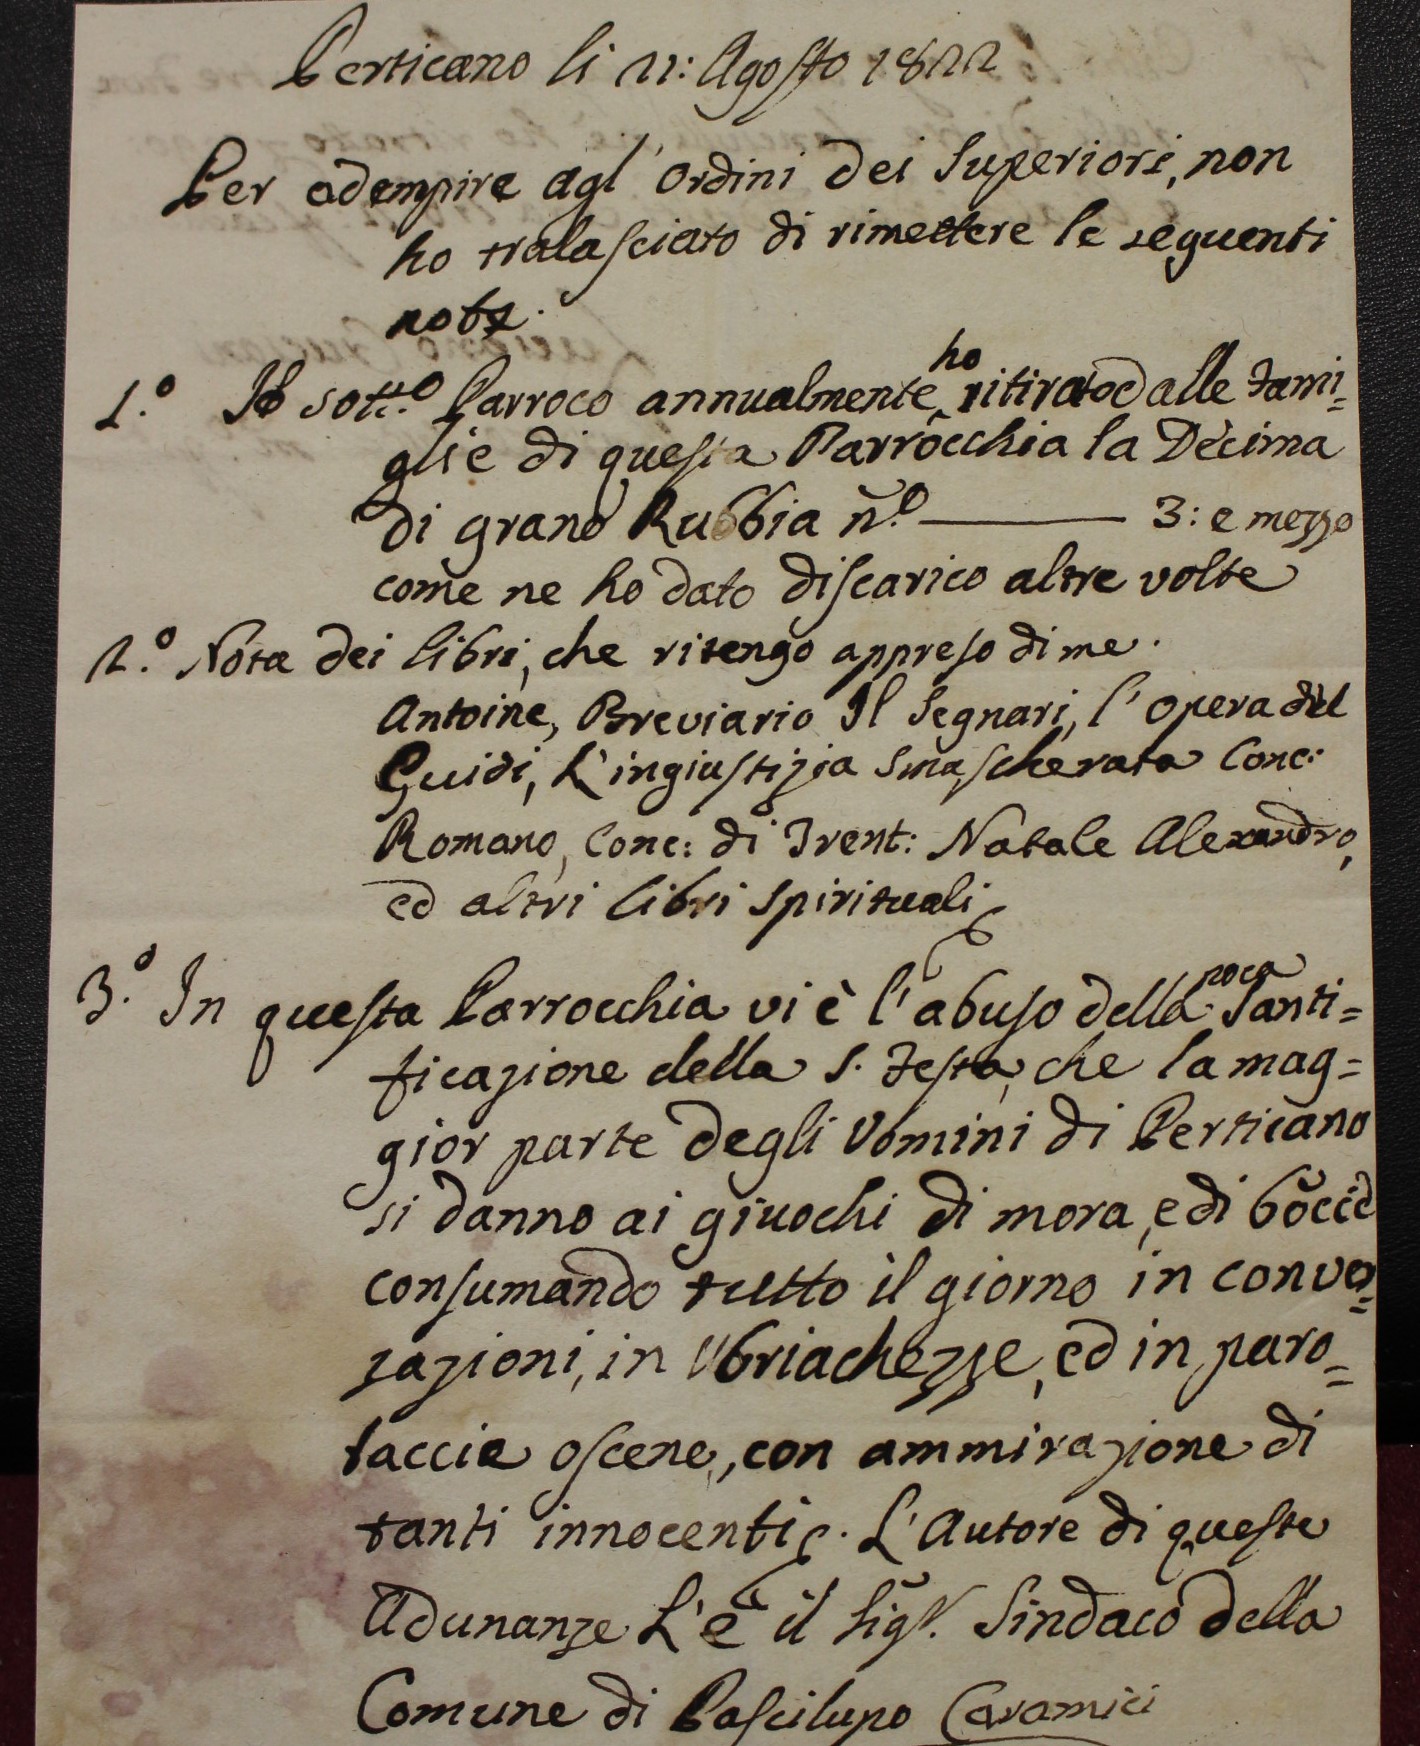 Perticano li 22: Agosto 1822
Per adempire agl'Ordini dei Superiori, non
ho tralasciato di rimettere le seguenti
note.
1.º Il sott.º Parroco annualmente ho ritirato dalle Fami=
glie di questa Parrocchia la Decima
di grano Rubbia n.º ——— 3: e mezzo
come ne ho dato discarico altre volte
2.º Nota dei libri, che ritengo appreso di me.
Antoine, Breviario Il Segnari, l'opera del
Guidi, L'ingiustizia smascherata Conc:
Romano, Conc: di Trent: Natale Alexandro,
ed altri libri spirituali
3.º In questa Parrocchia vi è l'abuso della poca Santi=
ficazione della S. Festa, che la mag=
gior parte degli Uomini di Perticano
si danno ai giuochi di mora, e di boccie
consumando tutto il giorno in conver=
sazioni, in Ubriachezze, ed in paro=
laccie oscene, con ammirazione di
tanti innocenti. L'Autore di queste
Adunanze L'è il Sigr. Sindaco della
Comune di Pascilupo Caramici